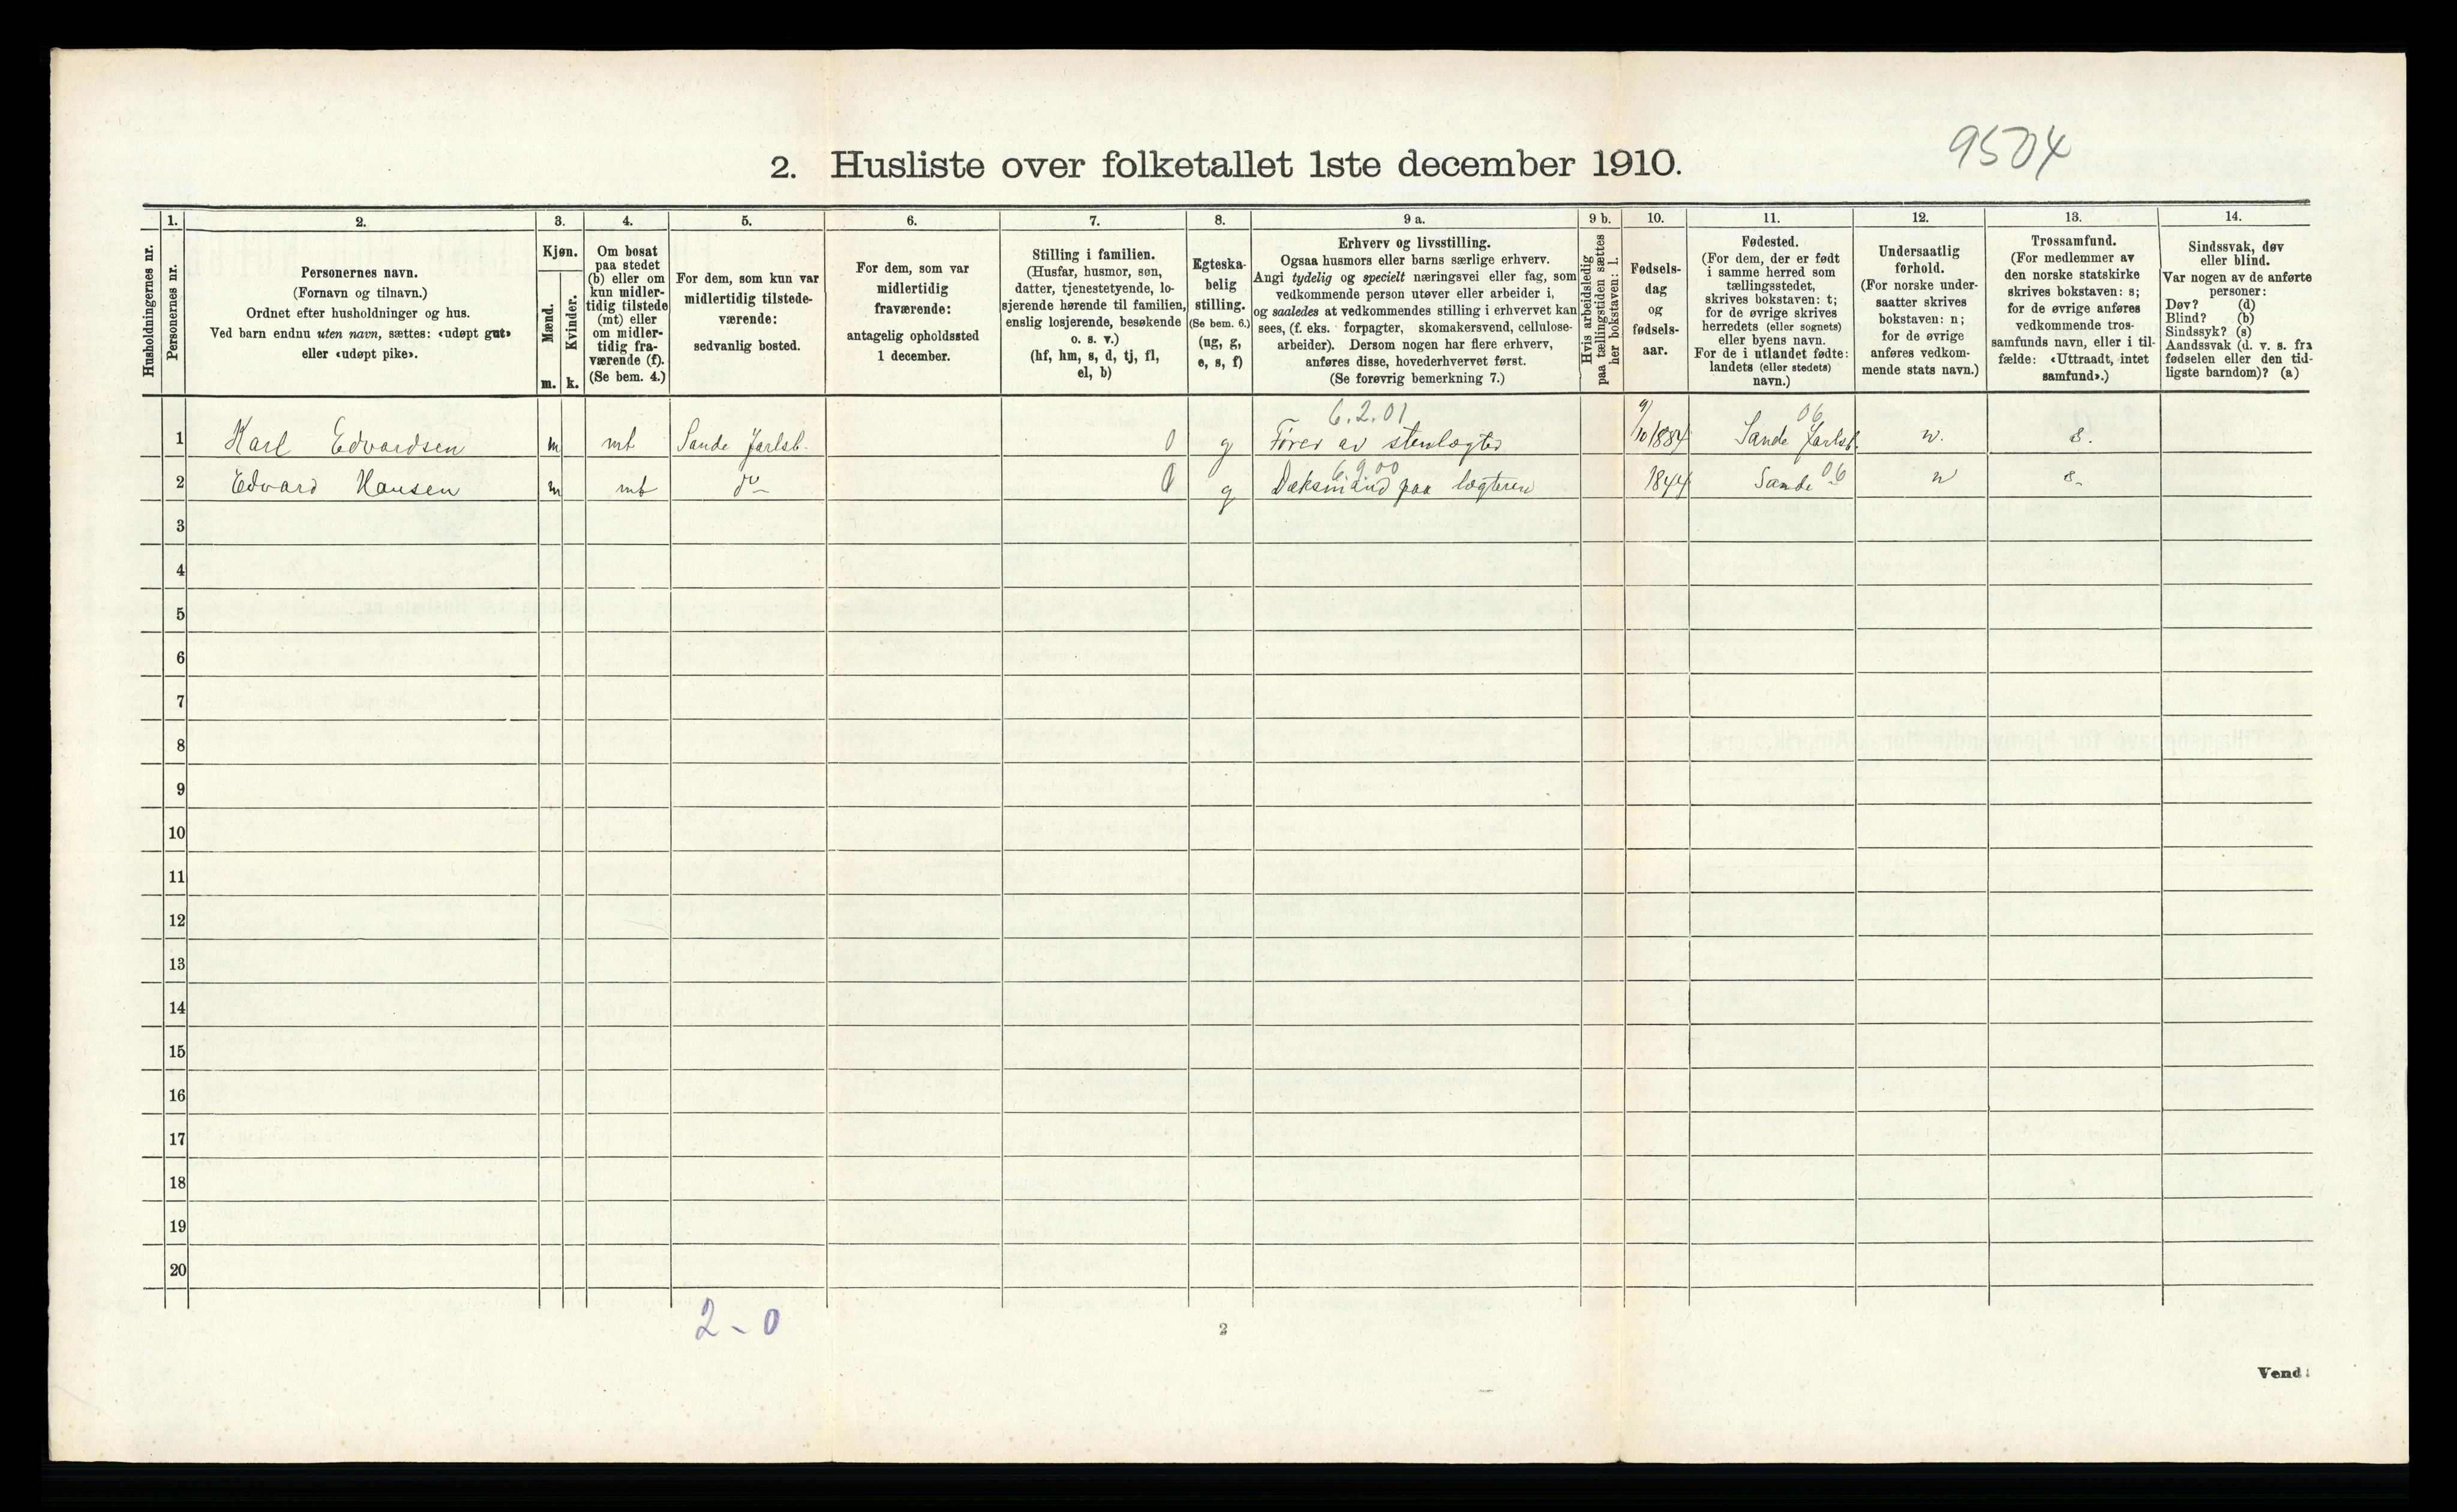 9504
2. Husliste over folketallet 1ste december 1910.
Husholdningernes nr.
1.
Personernes nr.
2.
Personernes navn.
(Fornavn og tilnavn.)
Ordnet efter husholdninger og hus.
Ved barn endnu uten navn, sættes: «udøpt gut»
eller «udøpt pike».
3.
Kjøn.
Mænd.
Kvinder.
m. k.
4.
Om bosat
paa stedet
(b) eller om
kun midler-
tidig tilstede
(mt) eller
om midler-
tidig fra-
værende (f).
(Se bem. 4.)
5.
For dem, som kun var
midlertidig tilstede-
værende:
sedvanlig bosted.
6.
For dem, som var
midlertidig
fraværende:
antagelig opholdssted
1 december.
7.
Stilling i familien.
(Husfar, husmor, søn,
datter, tjenestetyende, lo-
sjerende hørende til familien,
enslig losjerende, besøkende
o. s. v.)
(hf, hm, s, d, tj, fl,
el, b)
8.
Egteska-
belig
stilling.
(Se bem. 6.)
(ug, g,
e, s, f)
9 a.
Erhverv og livsstilling.
Ogsaa husmors eller barns særlige erhverv.
Angi tydelig og specielt næringsvei eller fag, som
vedkommende person utøver eller arbeider i,
og saaledes at vedkommendes stilling i erhvervet kan
sees, (f. eks. forpagter, skomakersvend, cellulose-
arbeider). Dersom nogen har flere erhverv,
anføres disse, hovederhvervet først.
(Se forøvrig bemerkning 7.)
9 b.
Hvis arbeidsledig
paa tællingstiden sættes
her bokstaven: l.
10.
Fødsels-
dag
og
fødsels-
aar.
11.
Fødested.
(For dem, der er født
i samme herred som
tællingsstedet,
skrives bokstaven: t;
for de øvrige skrives
herredets (eller sognets)
eller byens navn.
For de i utlandet fødte:
landets (eller stedets)
navn.)
12.
Undersaatlig
forhold.
(For norske under-
saatter skrives
bokstaven: n;
for de øvrige
anføres vedkom-
mende stats navn.)
13.
Trossamfund.
(For medlemmer av
den norske statskirke
skrives bokstaven: s;
for de øvrige anføres
vedkommende tros-
samfunds navn, eller i til-
fælde: «Uttraadt, intet
samfund».)
14.
Sindssvak, døv
eller blind.
Var nogen av de anførte
personer:
Døv? (d)
Blind? (b)
Sindssyk? (s)
Aandssvak (d. v. s. fra
fødselen eller den tid-
ligste barndom)? (a)
6.2.01 06
1 Karl Edvardsen m mt Sande Jarlsb. 0 g Fører av stenlægter 9/10 1884 Sande Jarlsb. n. s.
6.9.00 06
2 Edvard Hansen m mt do 0 g Dæksmand paa lægteren 1844 Sande n s.
3
4
5
6
7
8
9
10
11
12
13
14
15
16
17
18
19
20
2 - 0
2
Vend!